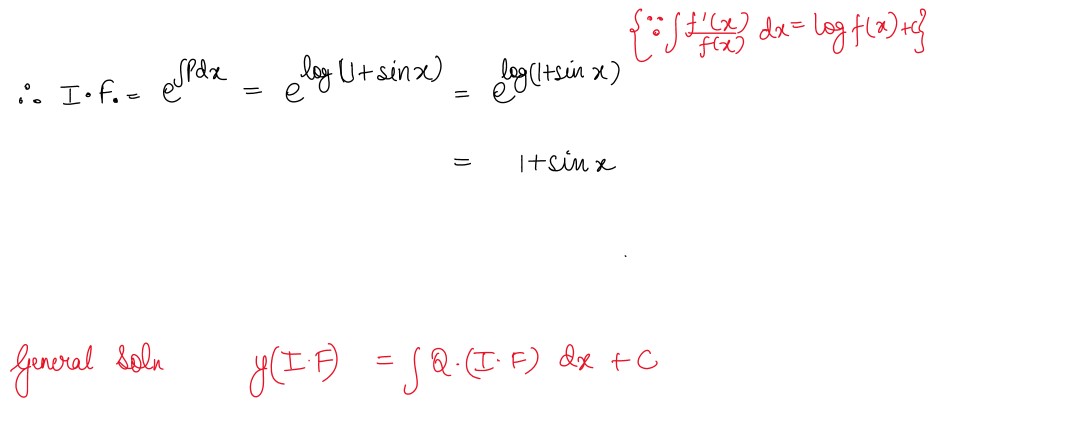 {∵ ∫ f'(x)/f(x) dx = log f(x) + c}
∴ I.F. = e^∫Pdx = e^log(1+sinx) = e^log(1+sin x)
= 1+sin x
General Soln y(I.F) = ∫ Q.(I.F) dx + C